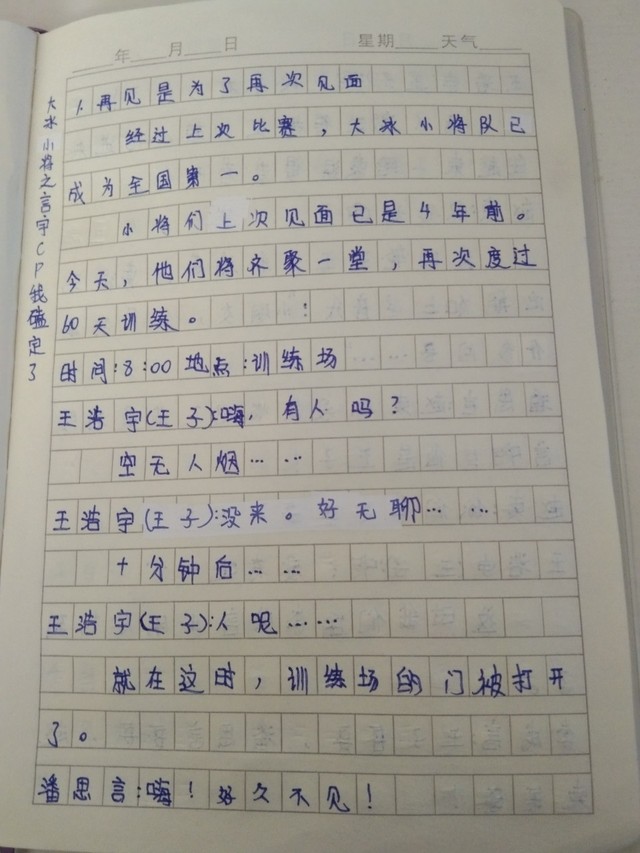 年 月 日 星期 天气
大冰小将之言宇CP线磕定了
1.再见是为了再次见面
经过上次比赛，大冰小将队已
成为全国第一。
小将们上次见面已是4年前。
今天，他们将齐聚一堂，再次度过
60天训练。
时间:8:00 地点:训练场
王浩宇(王子):嗨，有人吗？
空无人烟……
王浩宇(王子):没来。好无聊……
十分钟后……
王浩宇(王子):人呢……
就在这时，训练场的门被打开
了。
潘思言:嗨！好久不见！